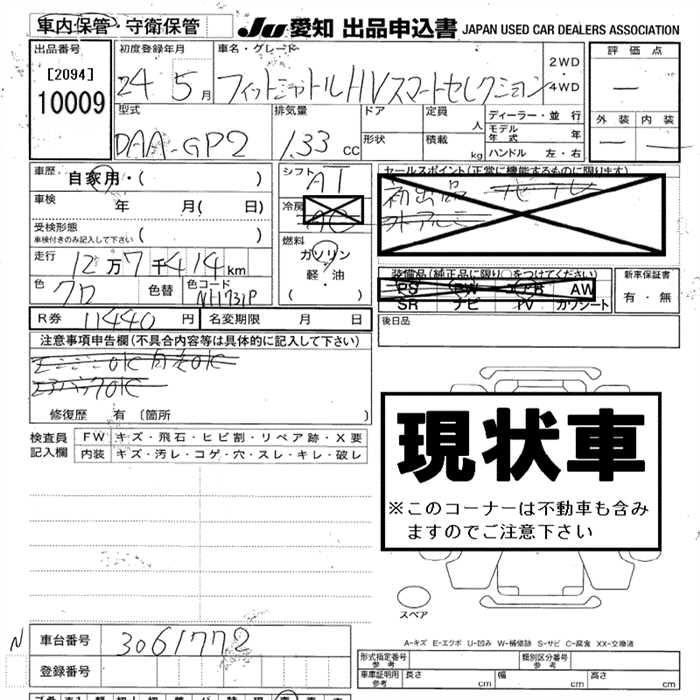 車内保管・守衛保管
Ju 愛知 出品申込書 JAPAN USED CAR DEALERS ASSOCIATION
出品番号 初度登録年月 車名・グレード 評価点
[2094]
10009
24 5月 フィットシャトルHVスマートセレクション 2WD・4WD
外装 内装
型式 排気量 ドア 定員 人 ディーラー・並行
DAA-GP2 1.33 cc 形状 積載 kg モデル年式 年
ハンドル 左・右
車歴 自家用・( )
シフト AT
セールスポイント(正常に機能するものに限ります)
車検 年 月( 日)
冷房 AC
初出品 ナビTV
外アルミ
受検形態
車検付きのみ記入して下さい ( )
燃料
ガソリン
軽・油
( )
走行 12万7千414km
色 クロ 色替 色コード NH731P
装備品(純正品に限り○をつけてください) 新車保証書
PS PW エアB AW 有・無
SR ナビ TV カワシート
R券 11440円 名変期限 月 日
後日品
注意事項申告欄(不具合内容等は具体的に記入して下さい)
エンジンOK 自走OK
エアバックOK
修復歴 有 (箇所 )
検査員記入欄
FW キズ・飛石・ヒビ割・リペア跡・X要
内装 キズ・汚レ・コゲ・穴・スレ・キレ・破レ
現状車
※このコーナーは不動車も含み
ますのでご注意下さい
スペア
A-キズ E-エクボ U-凹み W-補修跡 S-サビ C-腐食 XX-交換済
N 車台番号 3061772
登録番号
形式指定番号 参考 類別区分番号 参考
車庫証明用 参考 長さ cm 幅 cm 高さ cm